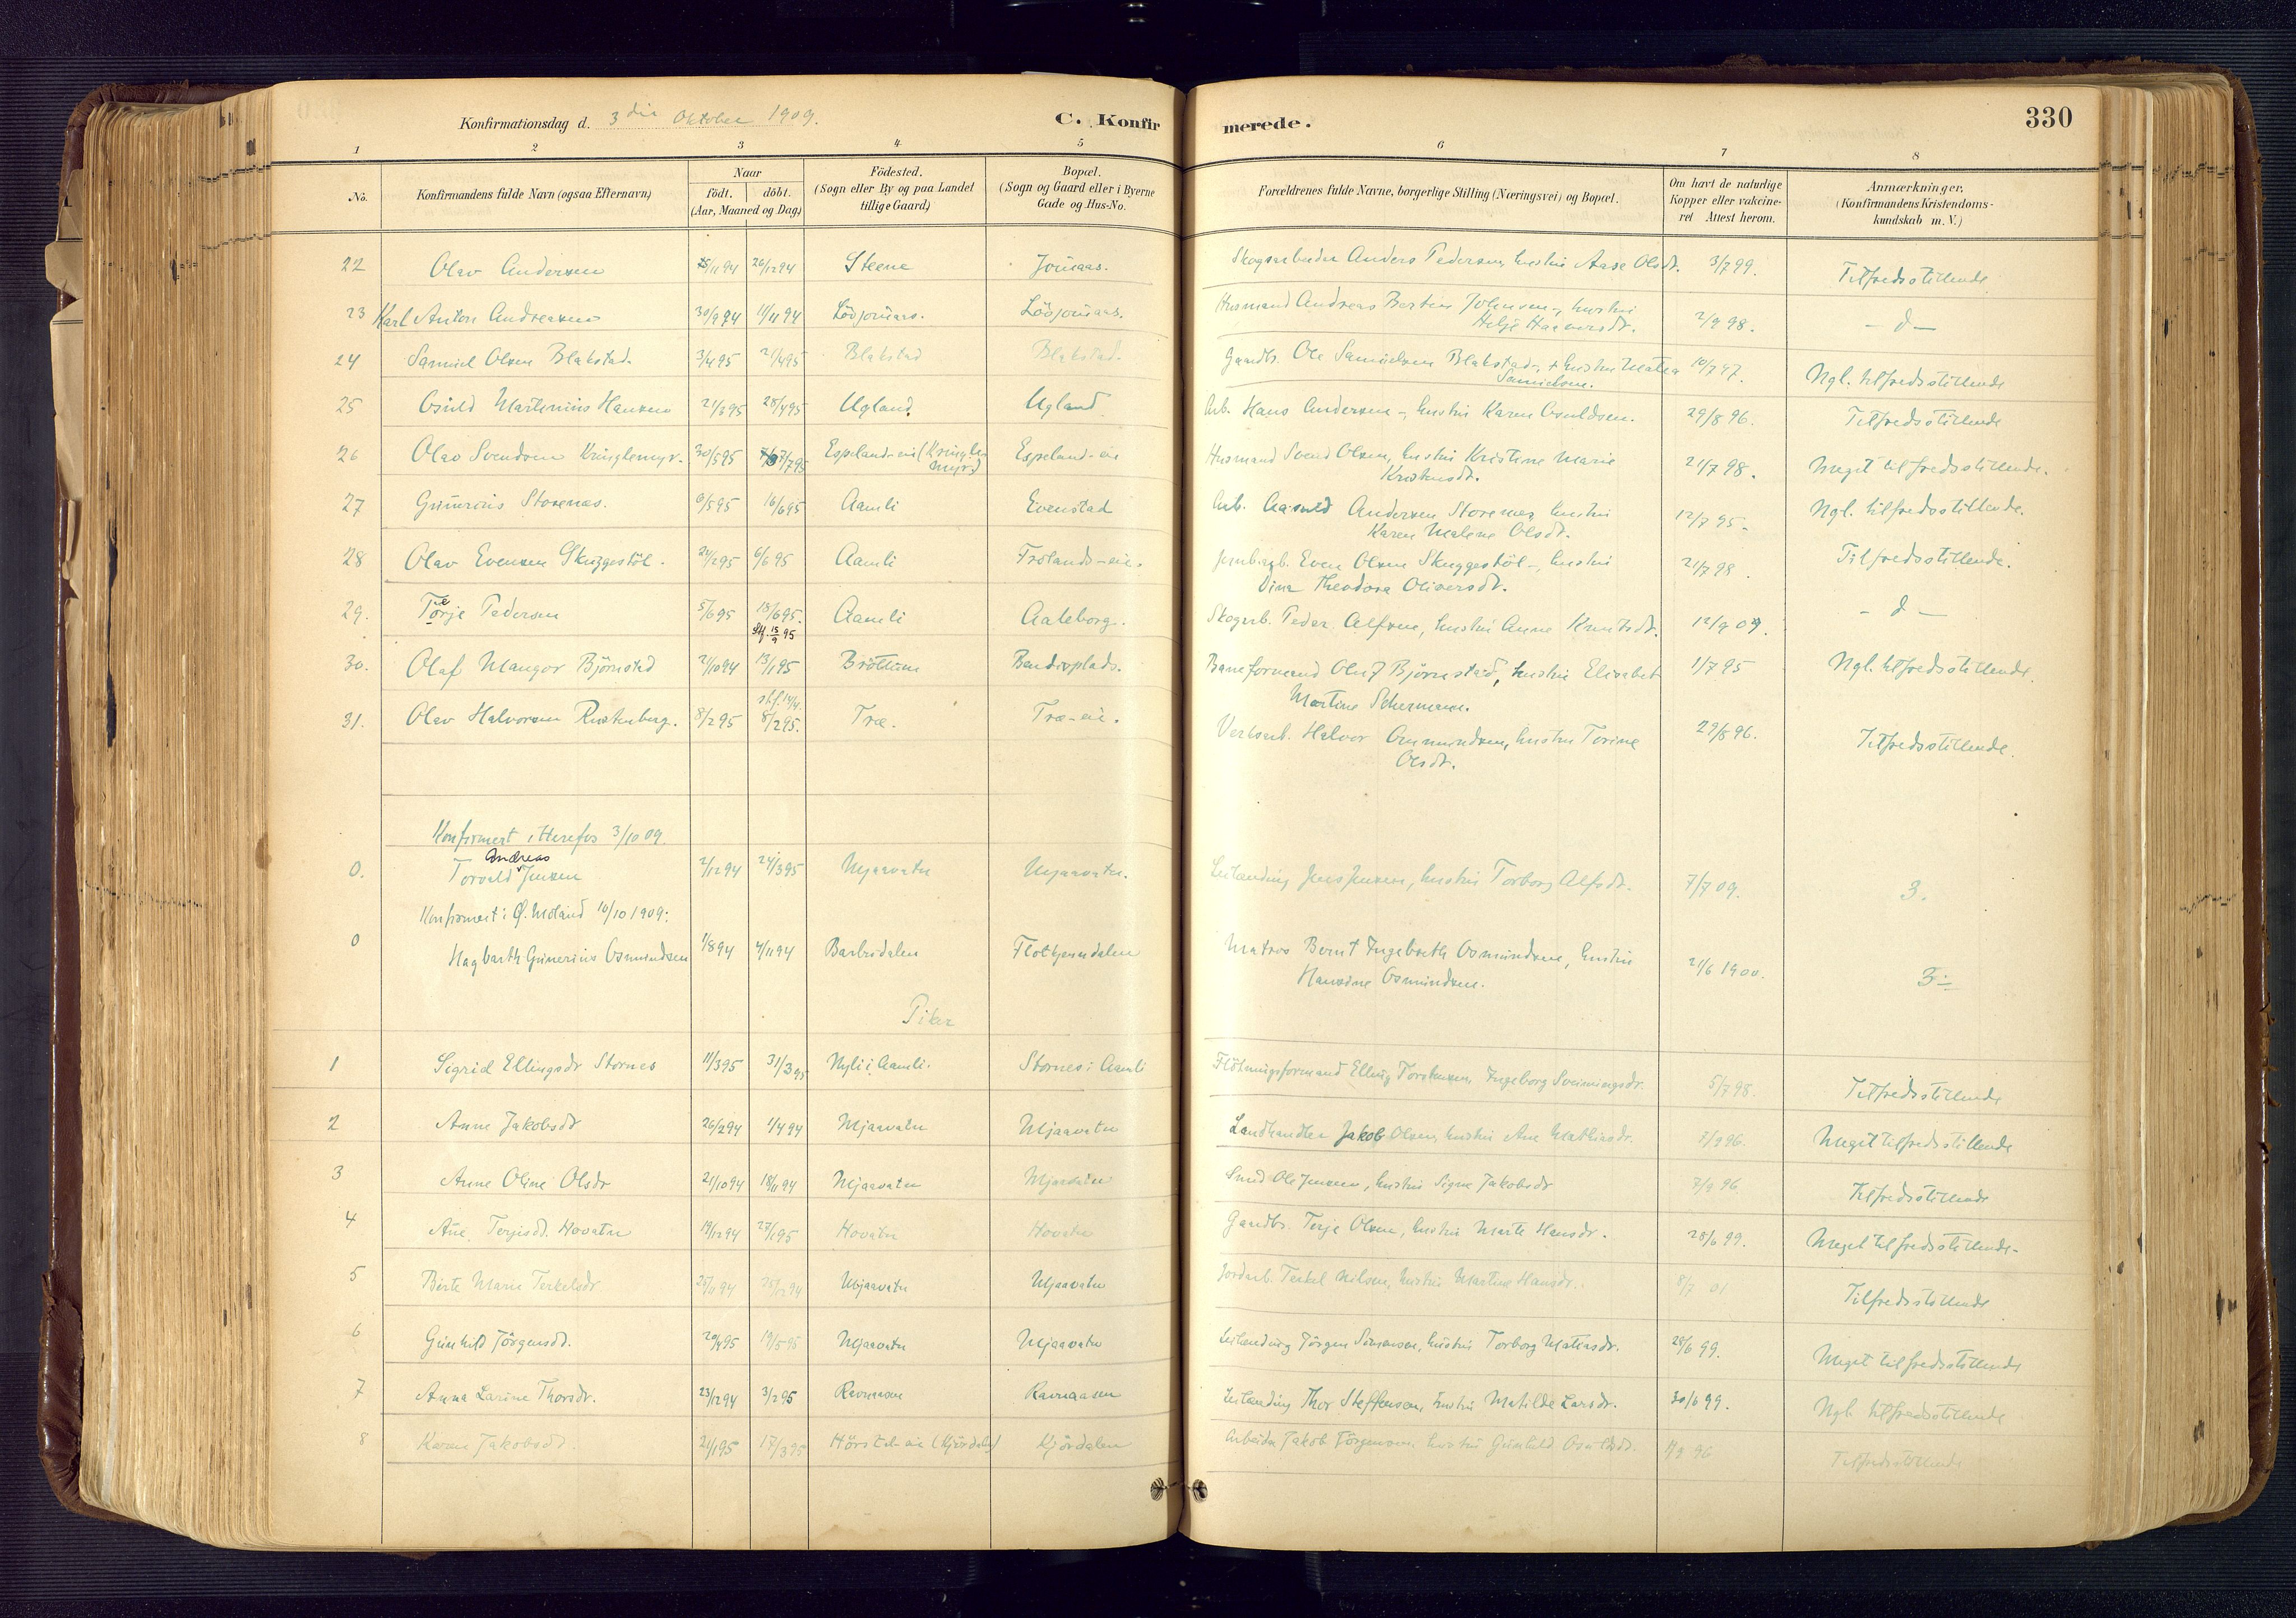 Konfirmationsdag d. 3die Oktober 1909. C. Konfirmerede. 330
1 2 3 4 5 6 7 8
No. Konfirmandens fulde Navn (ogsaa Efternavn) Naar födt. döbt. (Aar, Maaned og Dag) Födested. (Sogn eller By og paa Landet tillige Gaard) Bopæl. (Sogn og Gaard eller i Byerne Gade og Hus-No. Forældrenes fulde Navne, borgerlige Stilling (Næringsvei) og Bopæl. Om havt de naturlige Kopper eller vakcineret Attest herom. Anmærkninger, (Konfirmandens Kristendomskundskab m. V.)
22 Olav Andersen 15/11 94 26/12 94 Steene Jomaas. Skogsarbeider Anders Pedersen, hustru Aase Olsdt. 3/7 99. Tilfredsstillende
23 Karl Anton Andreasen 30/9 94 11/11 94 Lövjomaas. Lövjomaas. Husmand Andreas Bertin Johnsen, hustru Helje Haaversdt. 2/9 98. – d –
24 Samuel Olsen Blakstad. 3/4 95 21/4 95 Blakstad Blakstad. Gaardbr. Ole Samuelsen Blakstad, + hustru Matea Samuelsen. 10/7 97. Ngl. tilfredsstillende
25 Osuld Martinius Hansen 21/3 95 28/4 95 Ugland Ugland Arb. Hans Andersen, hustru Karen Osuldsen. 29/8 96. Tilfredsstillende
26 Olav Svendsen Kringlemyr. 30/5 95 7/7 95 Espeland-eie (Kringlemyr) Espeland-eie Husmand Svend Olsen, hustru Kristine Marie Kristensdt. 21/7 98. Meget tilfredsstillende.
27 Gunerius Storenes. 9/5 95 16/6 95 Aamli Evenstad Arb. Aasuld Andersen Storenes, hustru Karen Malene Olsdt. 12/7 95. Ngl. tilfredsstillende.
28 Olav Evensen Skuggestöl. 24/2 95 6/6 95 Aamli Frölands-eie. Jernb.arb. Even Olsen Skuggestöl, hustru Dina Theodora Oliversdt. 21/7 98. Tilfredsstillende.
29. Torje Pedersen 5/6 95 18/6 95. Stf. 15/9 95 Aamli Aaleborg. Skogarb. Peder Alfsen, hustru Anne Knutsdt. 12/9 09. – d –
30. Olaf Mangor Björnstad 21/10 94 13/1 95 Bröttum Bendiksplads. Baneformand Oluf Björnstad, hustru Elisabet Martine Schermann. 1/7 95 Ngl. tilfredsstillende.
31. Olav Halvorsen Rustenberg. 8/2 95 stf. 14/4. 8/2 95. Træ. Træ-eie. Verksarb. Halvor Gunmundsen, hustru Torine Olsdt. 29/8 96. Tilfredsstillende.
Konfirmert i Herefos 3/10 09.
0. Torvald Andreas Jensen 2/12 94 24/3 95 Mjaavatn Mjaavatn. Leilending Jens Jensen, hustru Torborg Alfsdt. 7/7 09. 3.
Konfirmert i Ø. Moland 10/10 1909:
0 Hagbarth Gunerius Osmundsen 1/8 94 4/11 94 Barbudalen Flotkjendalen Matros Bernt Ingebreth Osmundsen, hustru Hansine Osmundsen. 21/6 1900. 3÷
Piker
1 Sigrid Ellingsdt Stornes 11/3 95 31/3 95 Nyli i Aamli. Stornes i Aamli Flötningsformand Elling Torstensen, Ingeborg Sveinungsdr. 5/7 98. Tilfredsstillende
2 Anne Jakobsdt 26/2 94 1/4 94 Mjaavatn Mjaavatn Landhandler Jakob Olsen, hustru Ane Mathiasdr. 7/9 96. Meget tilfredsstillende
3 Anne Oline Olsdr 21/10 94 18/11 94 Mjaavatn Mjaavatn Smed Ole Jensen, hustru Signe Jakobsdr 7/9 96 Tilfredsstillende
4 Ane Terjesd. Hovatn 19/12 94 27/1 95 Hovatn Hovatn Gaardbr. Terje Olsen, hustru Marte Hansdr. 28/6 99. Meget tilfredsstillende.
5 Birte Marie Terkelsdr 25/11 94 25/12 94 Mjaavatn Mjaavatn Jordarb. Terkel Nilsen, hustru Martine Hansdr. 8/7 01 Tilfredsstillende
6 Gunhild Jörgensd. 20/4 95 19/5 95 Mjaavatn Mjaavatn Leilending Jörgen Simonsen, hustru Torborg Matiasdr. 28/6 99. Meget tilfredsstillende
7 Anna Larine Thorsdr. 23/12 94 3/2 95 Ravnaasen Ravnaasen Leilending Thor Steffensen, hustru Matilde Larsdr. 30/6 99. Ngl. tilfredsstillende
8 Karen Jakobsdt. 21/1 95 17/3 95 Hörstöl-eie (Kjördalen) Kjördalen Arbeider Jakob Jörgensen, hustru Gunhild Osuldsdt. 7/9 96 Tilfredsstillende